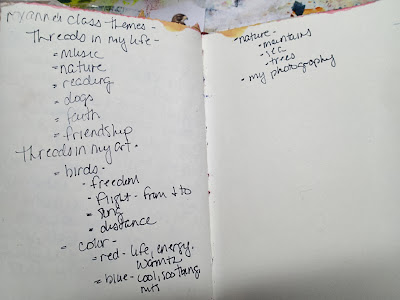 Myanneh class themes -
Threads in my life -
- music
- nature
- reading
- dogs
- faith
- friendship
Threads in my art -
- birds -
- freedom
- flight - from ↓ to
- song
- distance
- color -
- red - life, energy,
warmth
- blue - cool, soothing,
mts
- nature -
- mountains
- sea
- trees
- my photography